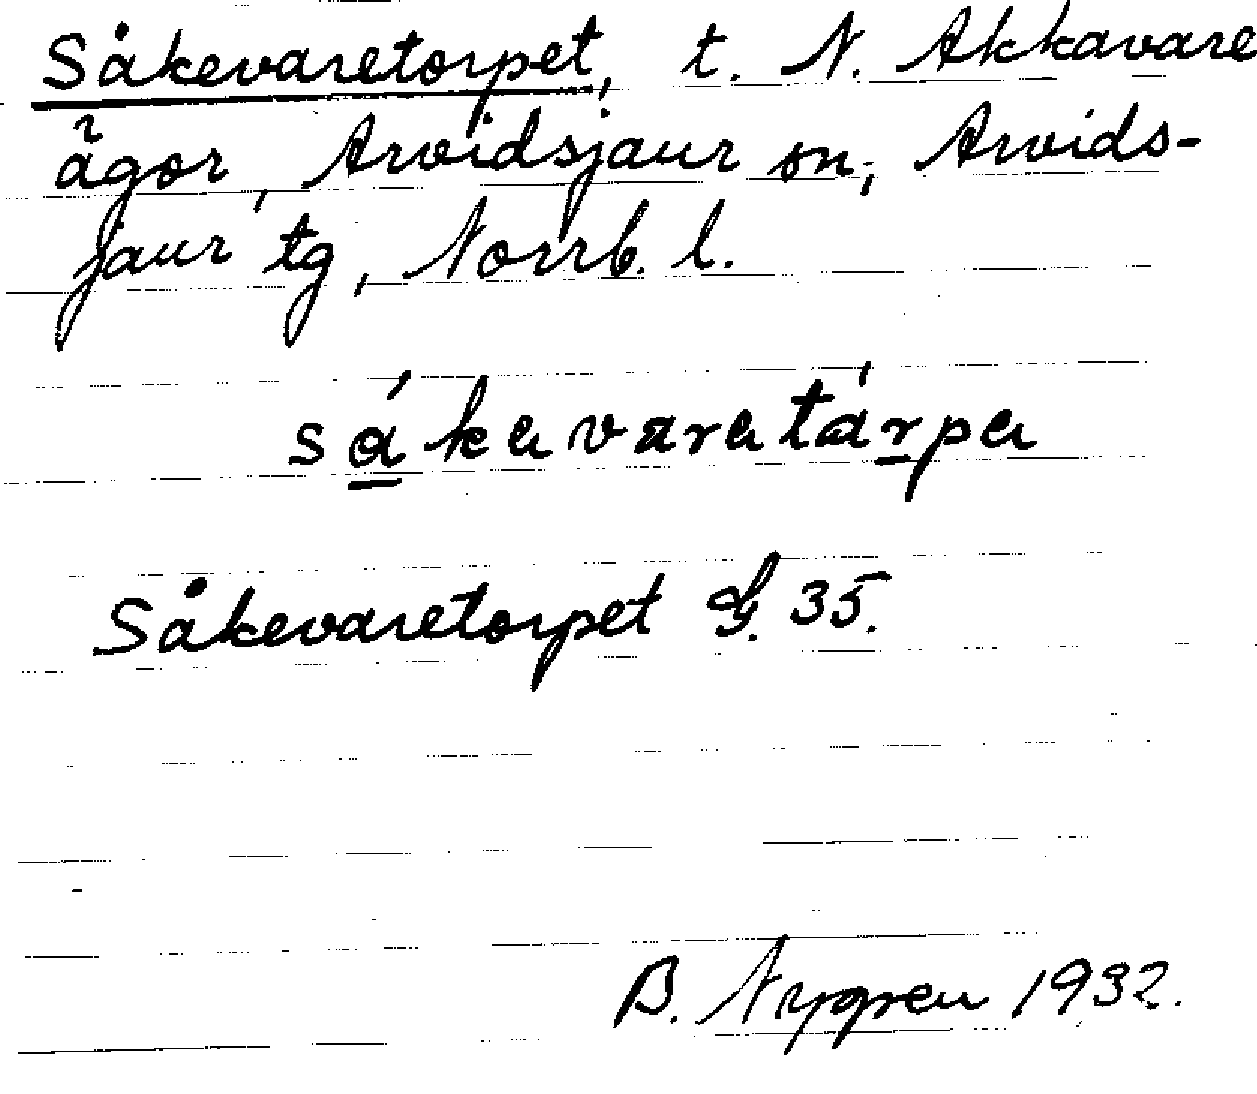 Såkevaretorpet, t. N. Akkavare
ägor, Arvidsjaur sn, Arvids-
jaur tg, Norrb. l.
Såkevaretorpet G. 35.
B. Nygren 1932.